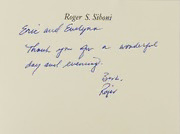 Roger S. Siboni
Eric and Evelyna
Thank you for a wonderful
day and evening.
Best,
Roger